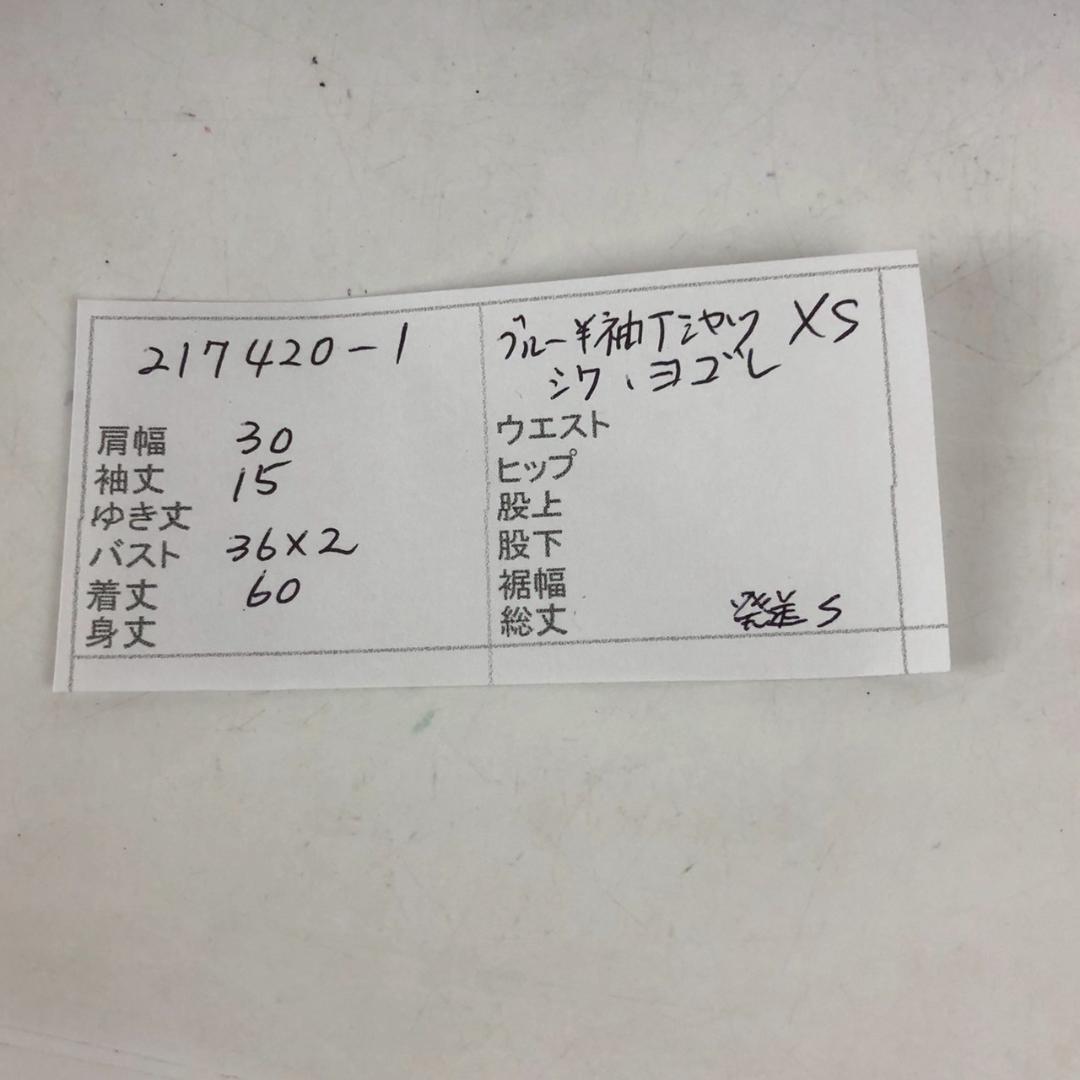 217420-1
肩幅 30
袖丈 15
ゆき丈
バスト 36×2
着丈 60
身丈
ブルー半袖Tシャツ XS
シワ、ヨゴレ
ウエスト
ヒップ
股上
股下
裾幅
総丈
S